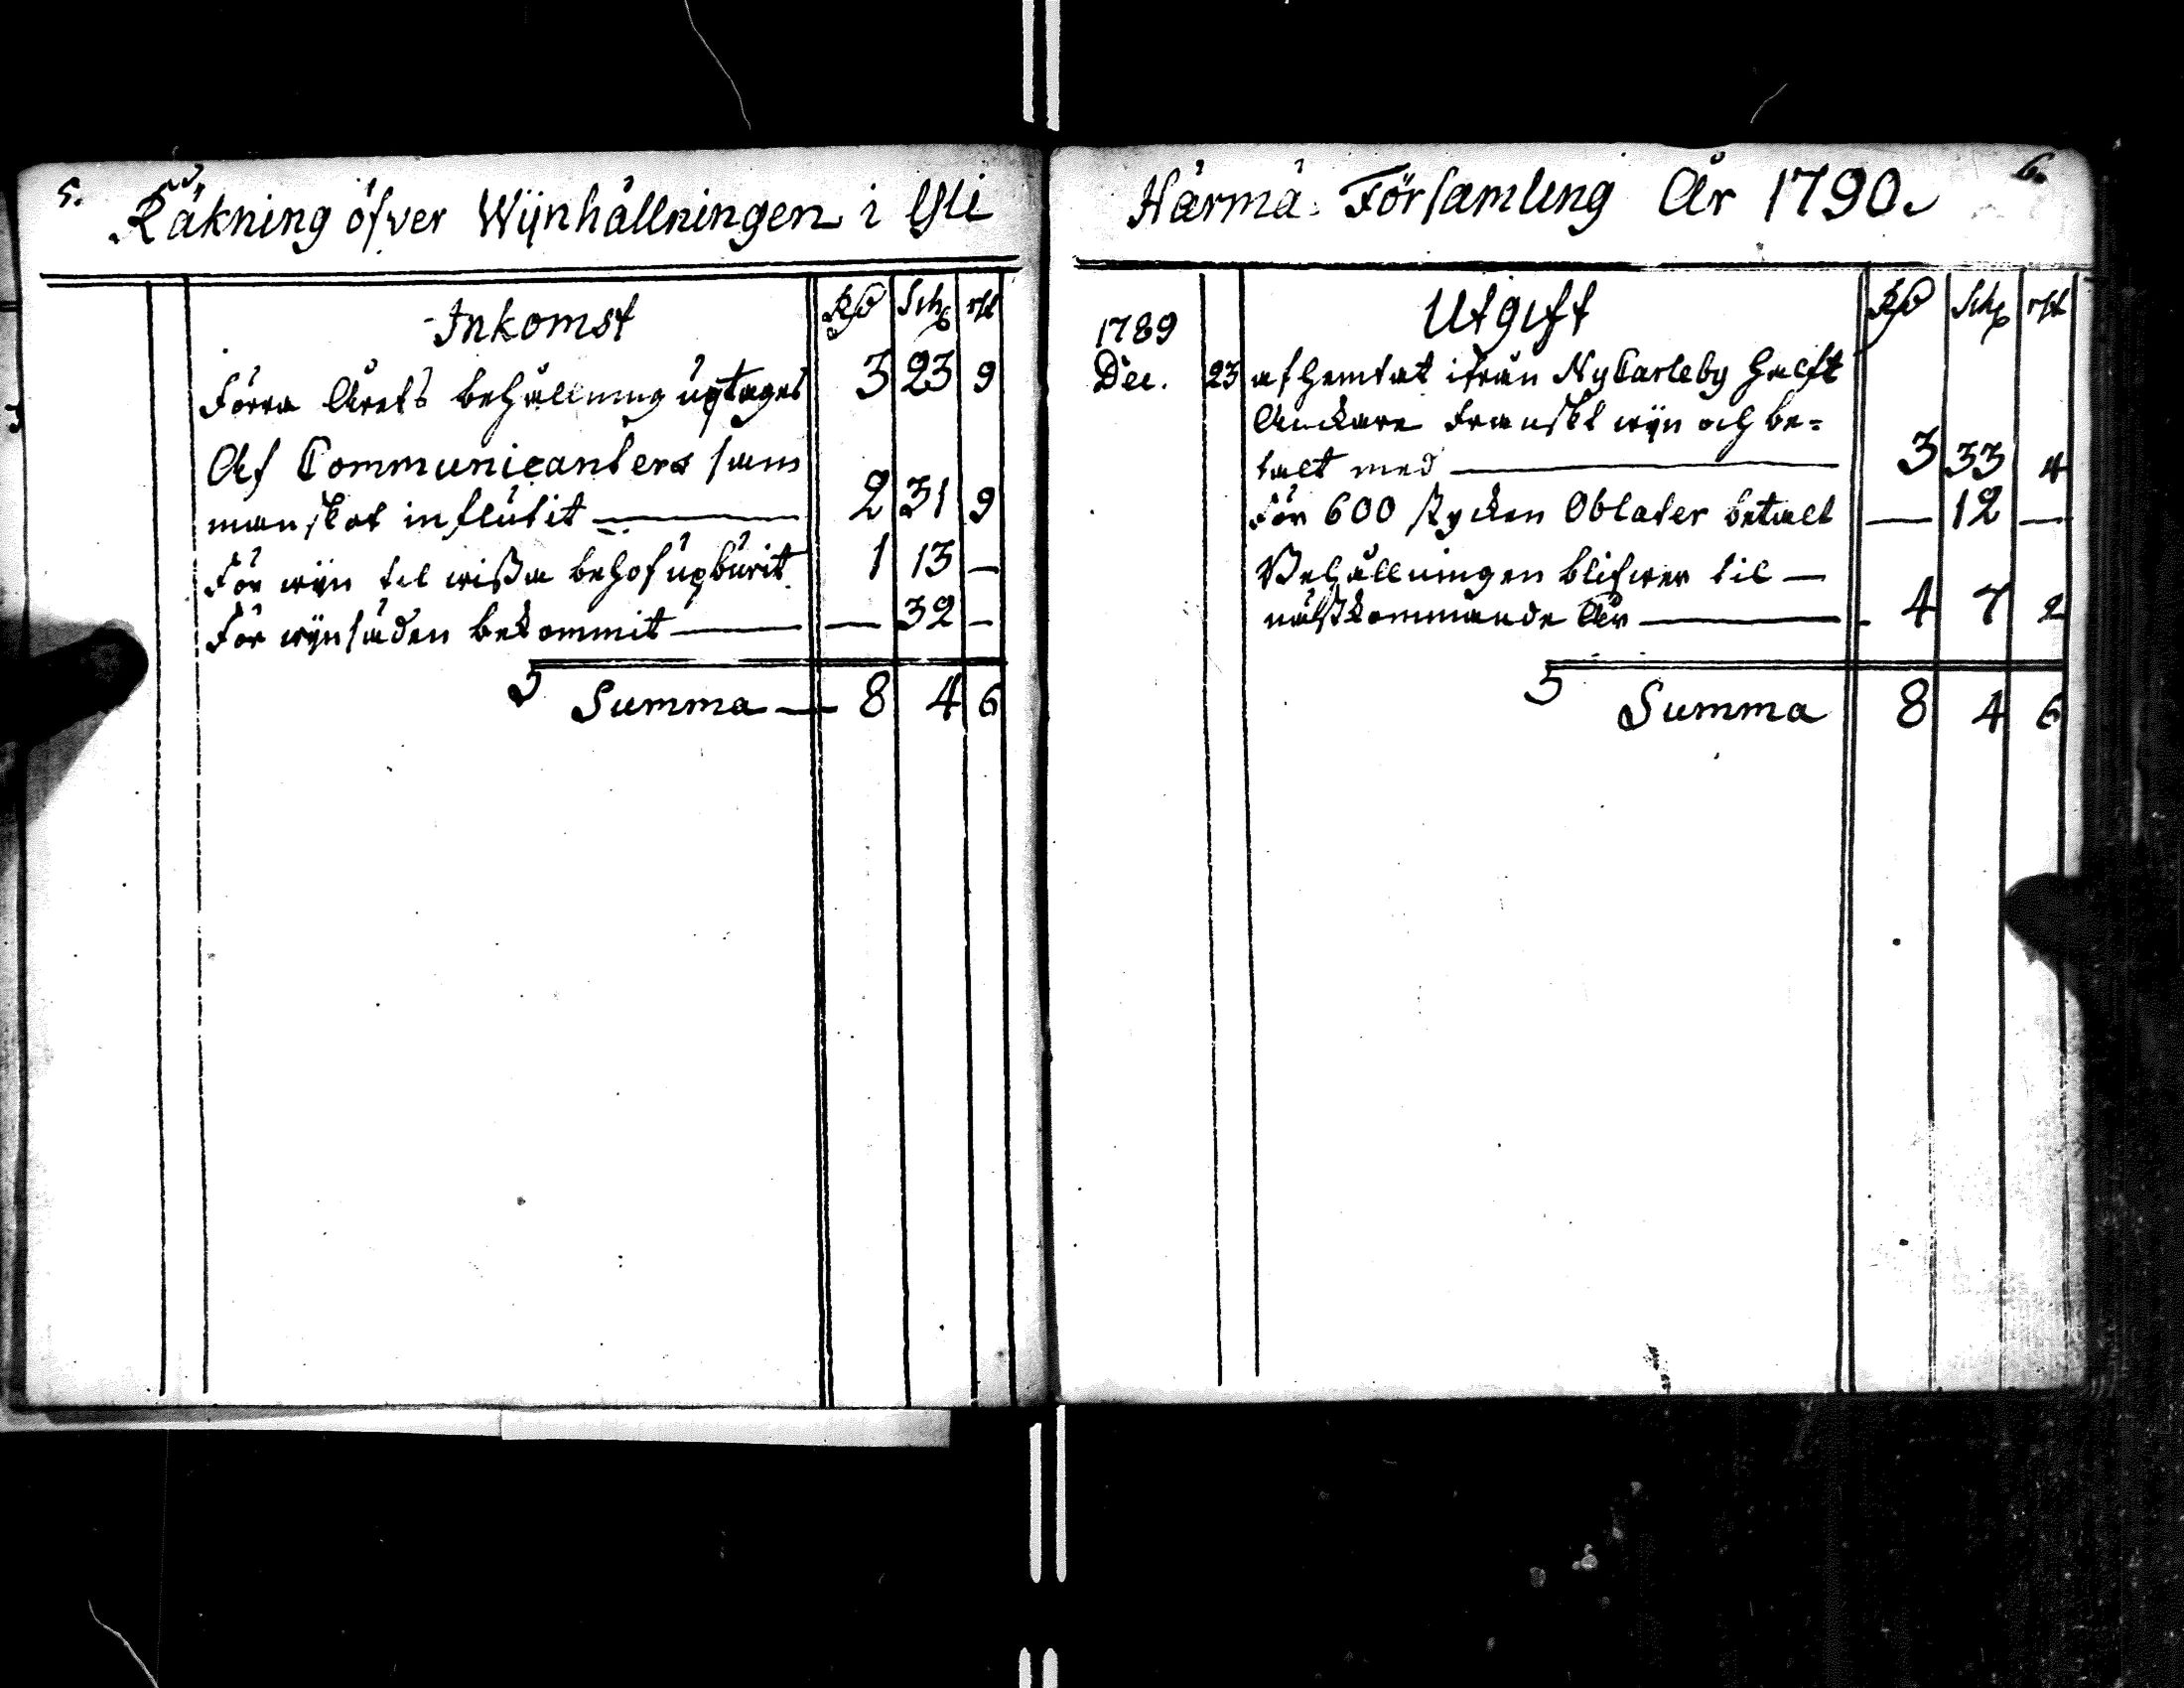 5.
Räkning öfver Wijnhållningen i Ylli
Inkomst Rd Sch rst
Förra Årets behållning uptages 3 23 9
Af Communicanters sam
manskot influtit — 2 31 9
För wijn til wissa behof upburit 1 13 —
För wijnsäden bekommit — — 32 —
S Summa — 8 4 6
6.
Härmä Församling År 1790.
Utgift Rd Sch rst
1789
Dec. 23 afhemtat ifrån NyCarleby halft
Anckare Franskt wijn och be=
talt med — 3 33 4
För 600 stycken Oblater betalt — 12 —
Behållningen blifwer til —
nästkommande År — 4 7 2
S Summa 8 4 6